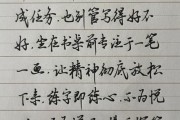 成任务，也别管写得好不
好，坐在书桌前专注于一笔
一画，让精神彻底放松
下来，练字即练心，不为悦